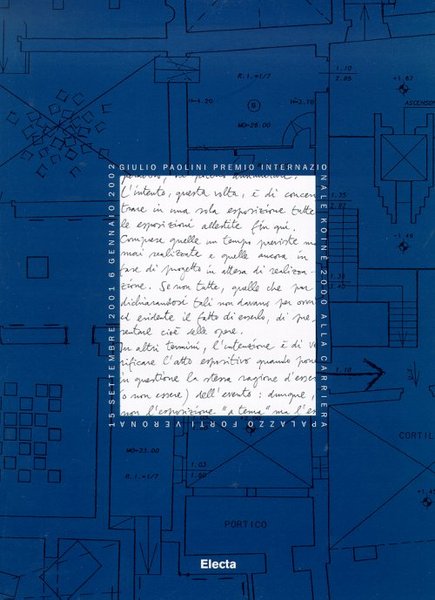 GIULIO PAOLINI PREMIO INTERNAZIO
NALE KOINÈ 2000 ALLA CARRIERA
PALAZZO FORTI VERONA
15 SETTEMBRE 2001 6 GENNAIO 2002
L'intento, questa volta, è di concen
trare in una sola esposizione tutte
le esposizioni allestite fin qui.
Comprese quelle un tempo previste ma
mai realizzate e quelle ancora in
fase di progetto in attesa di realizza-
zione. Se non tutte, quelle che pur
dichiarandosi tali non davano per ovvio
ed evidente il fatto di esserlo, di pre
sentare cioè delle opere.
In altri termini, l'intenzione è di ve
rificare l'atto espositivo quando pone
in questione la stessa ragione d'esser
(o non essere) dell'evento: dunque,
non l'esposizione "a tema" ma l'es
R.I.=1/7
H=1.20
H=3.78
MQ=26.00
1.10
2.86
+1.62
ASCENSO
1.35
MQ=33.00
R.I.=1/7
1.03
PORTICO
CORTIL
Electa